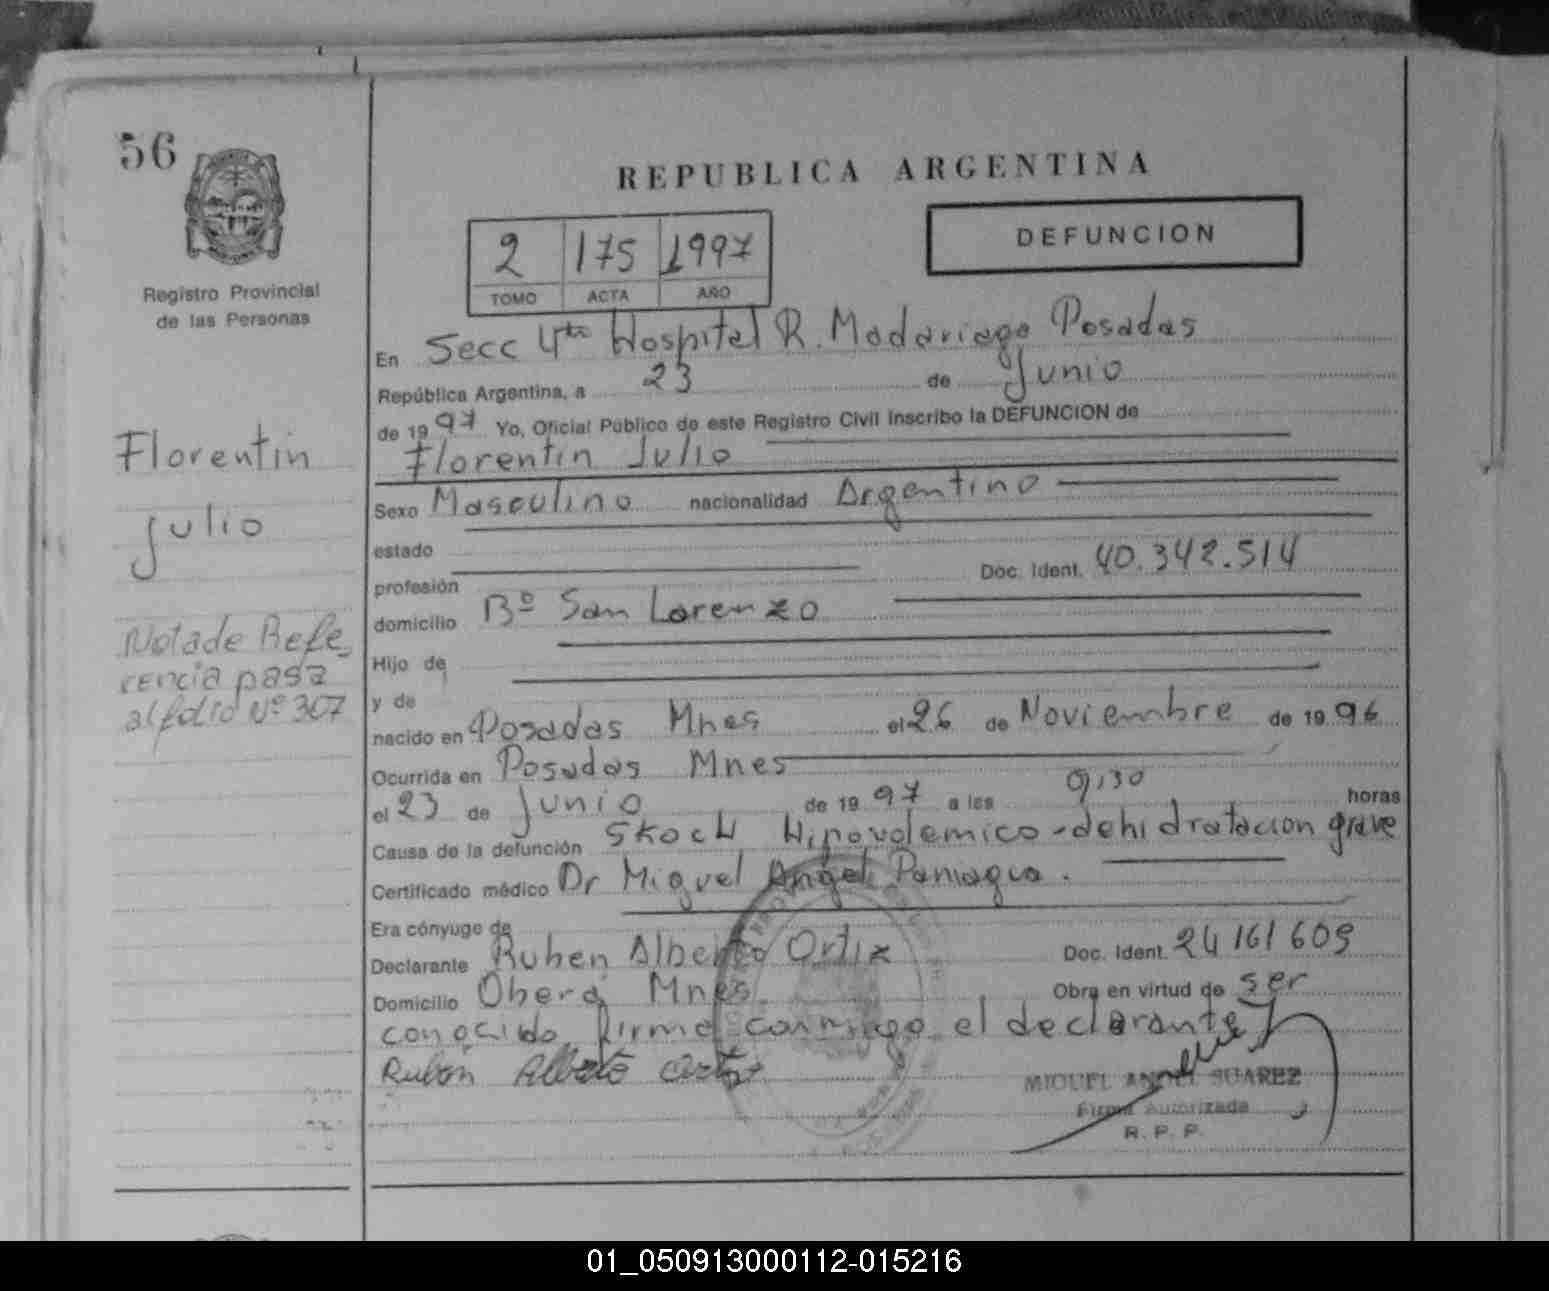 56
REPUBLICA ARGENTINA
2 175 1997
TOMO ACTA AÑO
DEFUNCION
Registro Provincial
de las Personas
En Secc 4ta Hospital R. Madariaga Posadas
República Argentina, a 23 de Junio
de 19 97 Yo, Oficial Público de este Registro Civil Inscribo la DEFUNCION de
Florentin Julio
Sexo Masculino nacionalidad Argentino
estado
profesión Doc. Ident. 40.342.514
domicilio Bº San Lorenzo
Hijo de
y de
nacido en Posadas Mnes el 26 de Noviembre de 19 96
Ocurrida en Posadas Mnes
el 23 de Junio de 19 97 a las 9,30 horas
Causa de la defunción Skock Hipovolemico - dehidratacion grave
Certificado médico Dr Miguel Angel Paniagua.
Era cónyuge de
Declarante Ruben Alberto Ortiz Doc. Ident. 24161609
Domicilio Oberá Mnes Obra en virtud de ser
conocido firma conmigo el declarante
Rubén Alberto Ortiz
MIGUEL ANGEL SUAREZ
Firma Autorizada
R. P. P.
Florentin
Julio
Nota de Refe
rencia pasa
al folio Nº 307
01_050913000112-015216